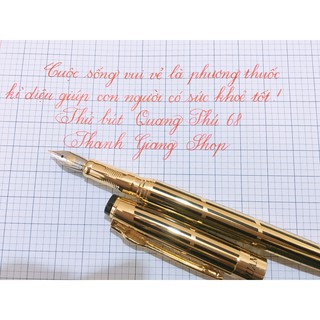 Cuộc sống vui vẻ là phương thuốc
kì diệu giúp con người có sức khoẻ tốt!
Thử bút Quang Thú 68
Thanh Giang Shop